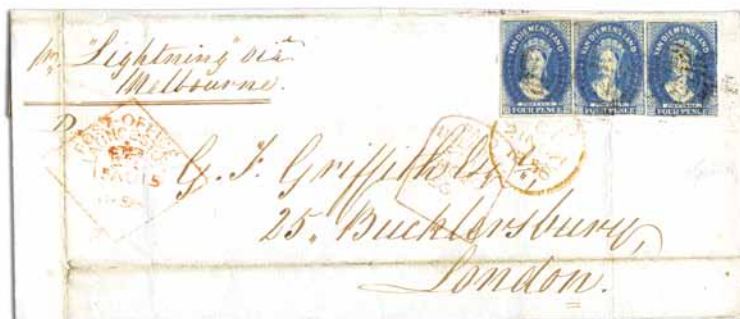 pr. "Lightning" via
Melbourne.
VAN DIEMENS LAND
FOUR PENCE
VAN DIEMENS LAND
FOUR PENCE
VAN DIEMENS LAND
FOUR PENCE
POST-OFFICE
G. F. Griffith Esqre,
25, Bucklersbury,
London.